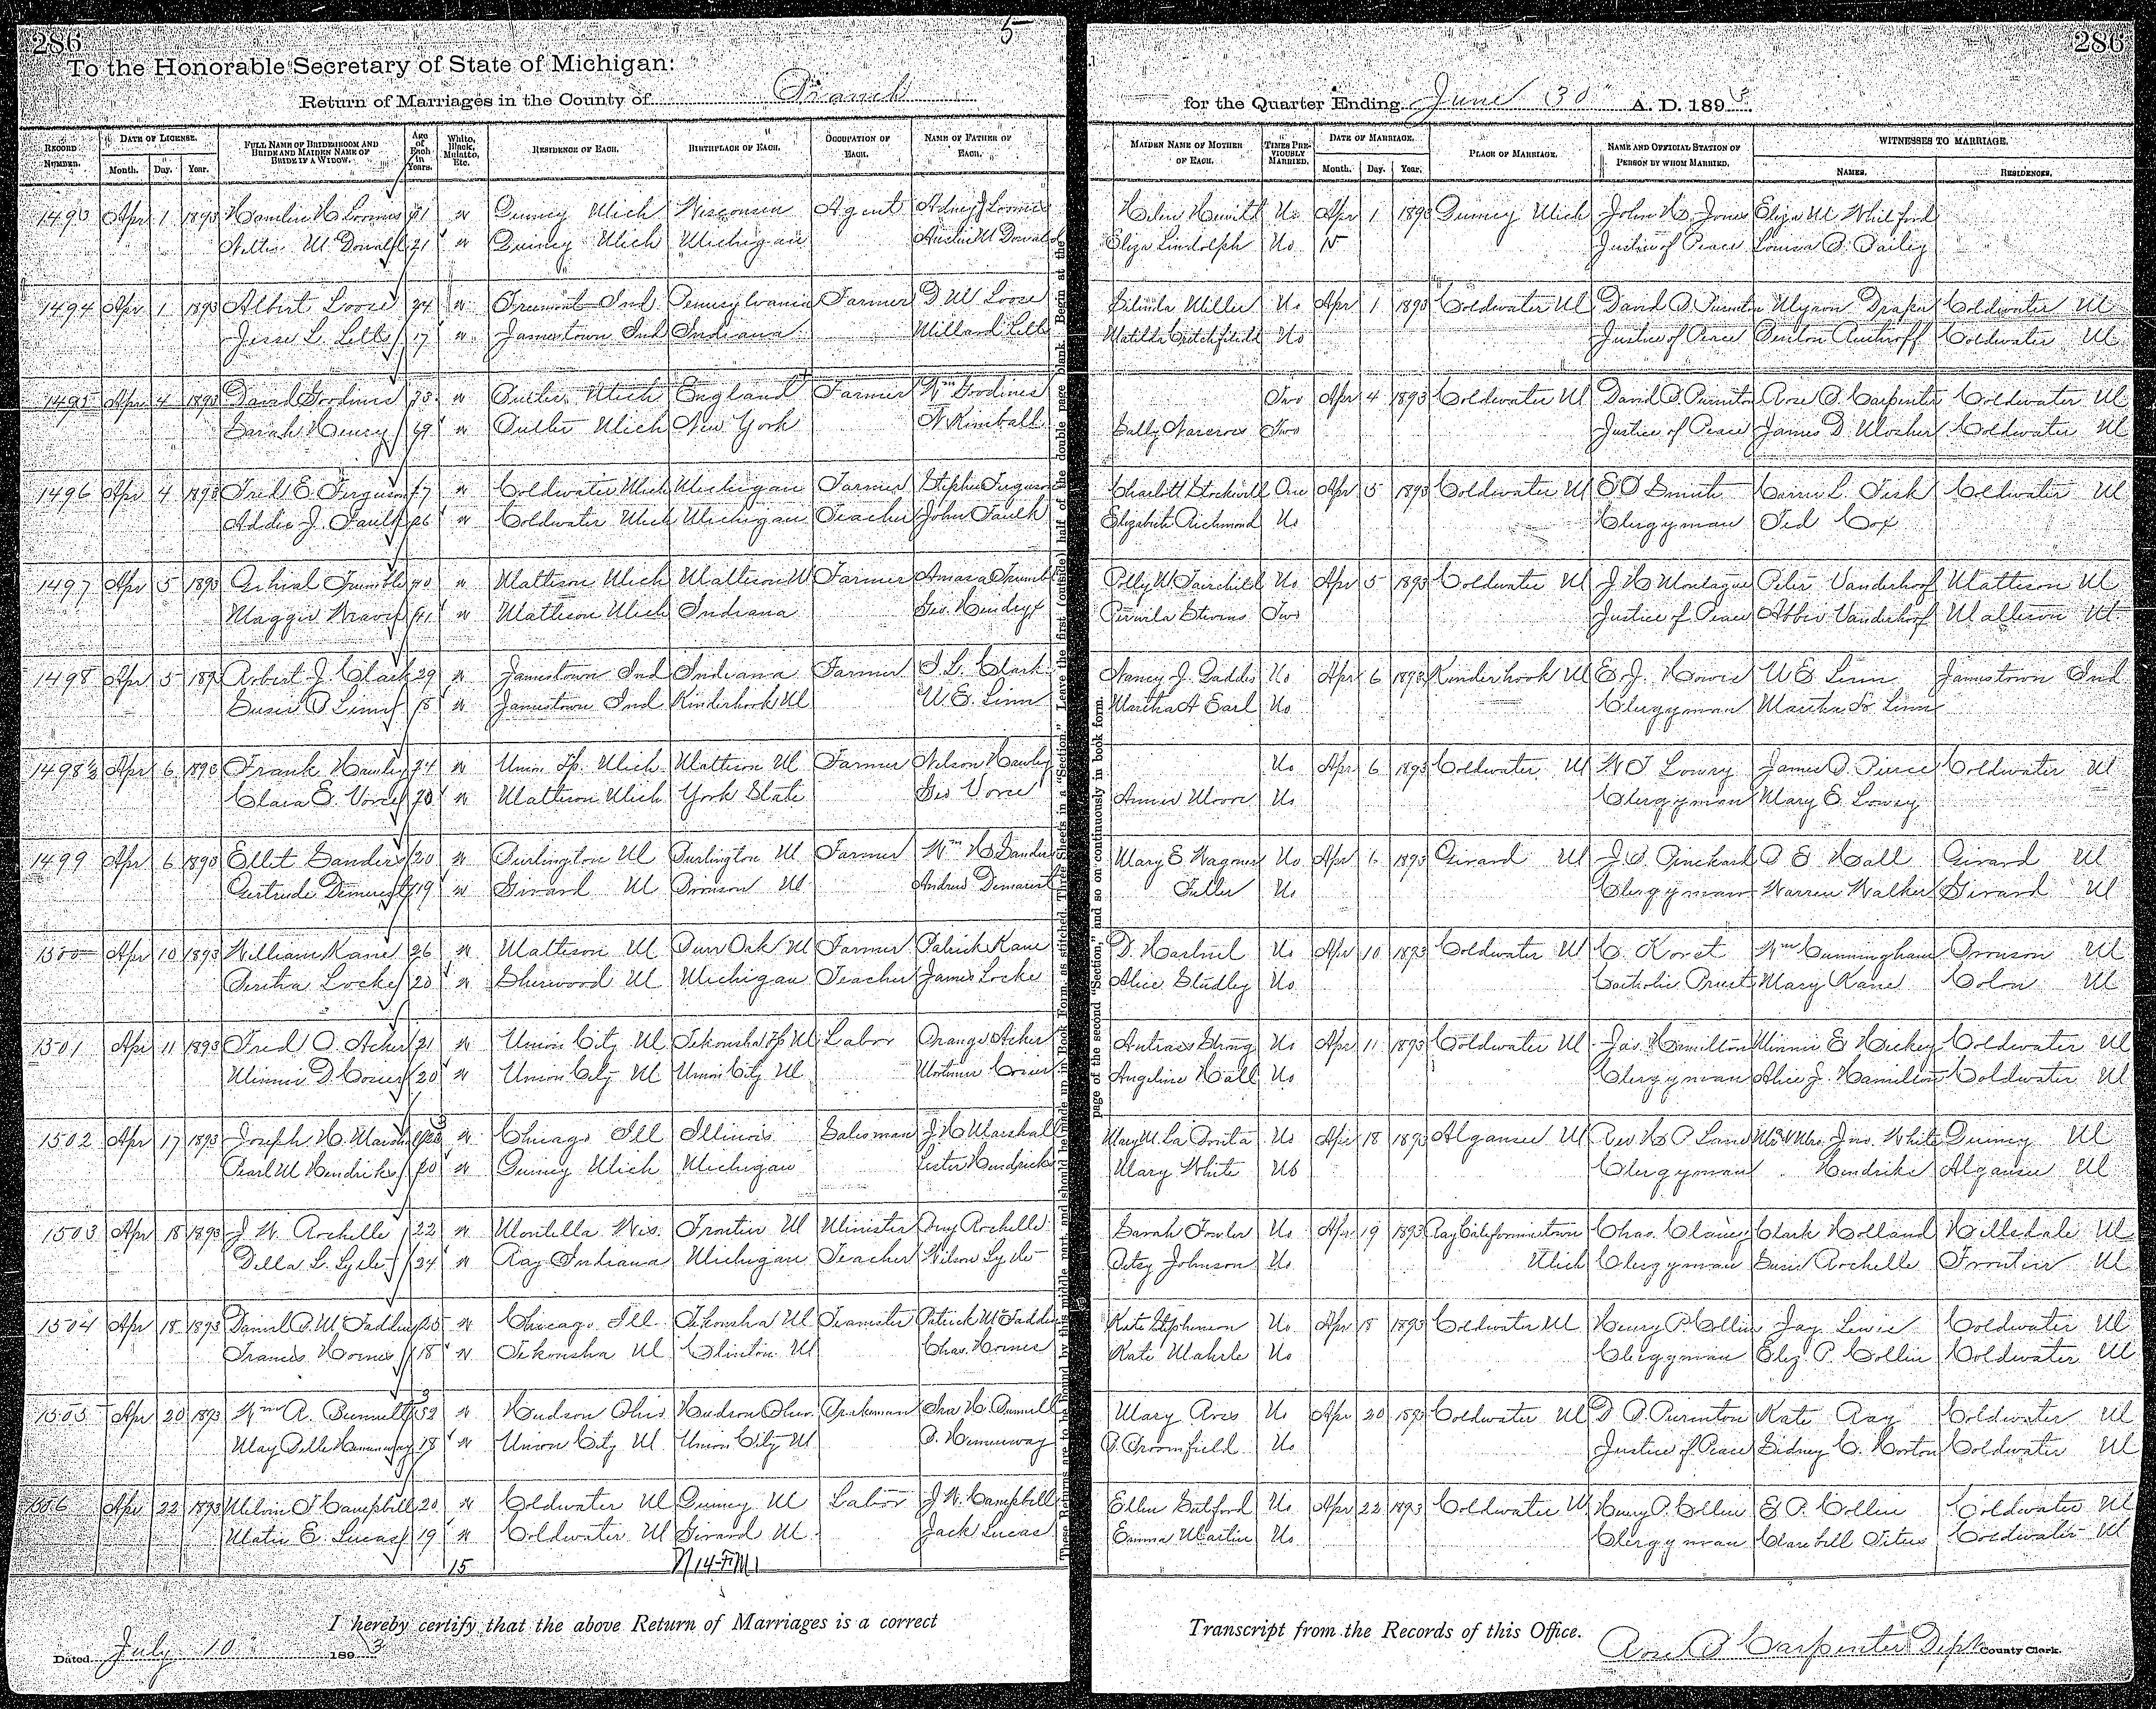 286
5
To the Honorable Secretary of State of Michigan:
Return of Marriages in the County of Branch
RECORD NUMBER. DATE OF LICENSE. Month. Day. Year. FULL NAME OF BRIDEGROOM AND BRIDE AND MAIDEN NAME OF BRIDE IF A WIDOW. Age of Each in Years. White, Black, Mulatto, Etc. RESIDENCE OF EACH. BIRTHPLACE OF EACH. OCCUPATION OF EACH. NAME OF FATHER OF EACH.
1493 Apr 1 1893 Hamlin H Loomis W Quincy Mich Wisconsin Agent Adney J Loomis
Nettie McDonald 21 W Quincy Mich Michigan
1494 Apr 1 1893 Albert Loose 24 W Fremont Ind Pennsylvania Farmer D M Loose
Jesse L. Lett 17 W Jamestown Ind Indiana Millard Lett
1495 Apr 4 1893 David Goodines W Butler Mich England Farmer Wm Goodines
Sarah Henry 69 W Butler Mich New York N Kimball
1496 Apr 4 1893 Fred E. Ferguson W Coldwater Mich Michigan Farmer Stephen Ferguson
Addie J. Faulk 26 W Coldwater Mich Michigan Teacher John Faulk
1497 Apr 5 1893 Trumble 40 W Mattison Mich Mattison M Farmer Amasa Trumble
Maggie 41 W Mattison Mich Indiana Geo. Hendryx
1498 Apr 5 189 Robert J. Clark 29 W Jamestown Ind Indiana Farmer Clark
Susie B Linn 18 W Jamestown Ind Kinderhook M W. E. Linn
1498½ Apr 6 1893 Frank Hawley 24 W Union Tp. Mich Mattison M Farmer Nelson Hawley
Clara E. Vorce 20 W Mattison Mich York State Geo Vorce
1499 Apr 6 1893 Ellet Sanders 20 W Burlington M Burlington M Farmer Wm H Sanders
Gertrude Demerest 19 W Girard M Bronson M Andrew Demarest
1500 Apr 10 1893 William Kane 26 W Mattison M Burr Oak M Farmer Patrick Kane
Bertha Locke 20 W Sherwood M Michigan Teacher James Locke
1501 Apr 11 1893 Fred O. Acker 21 W Union City M Tekonsha Tp M Labor Orange Acker
Minnie D. 20 W Union City M Union City M Mortimer
1502 Apr 17 1893 Joseph H. Marshall 23 W Chicago Ill Illinois Salesman J H Marshall
Pearl M Hendricks 20 W Quincy Mich Michigan Lester Hendricks
1503 Apr 18 1893 J W. Rochelle 22 W Montello Wis. Frontier M Minister Rochelle
Della L. Lyele 24 W Ray Indiana Michigan Teacher Wilson Lyele
1504 Apr 18 1893 Daniel B. McFadden 25 W Chicago Ill Tekonsha M Teamster Patrick McFadden
Frances Hornes 18 W Tekonsha M Clinton M Chas. Hornes
1505 Apr 20 1893 Wm A. Bunnell 32 W Hudson Ohio Hudson Ohio. Brakeman Ira H. Bunnell
May Belle Hemenway 18 W Union City M Union City M B. Hemenway
1506 Apr 22 1893 Melvin J Campbell 20 W Coldwater M Quincy M Labor J W. Campbell
Matie E. Lucas 19 W Coldwater M Girard M. Jack Lucas
15
N 14-FM1
I hereby certify that the above Return of Marriages is a correct
Dated July 10 1893
These Returns are to be bound by this middle part, and should be made up in Book Form, as stitched. Three Sheets in a "Section." Leave the first (outside) half of the double page blank. Begin at the
page of the second "Section," and so on continuously in book form.
286
for the Quarter Ending June 30 A. D. 1893
MAIDEN NAME OF MOTHER OF EACH. TIMES PREVIOUSLY MARRIED. DATE OF MARRIAGE. Month. Day. Year. PLACE OF MARRIAGE. NAME AND OFFICIAL STATION OF PERSON BY WHOM MARRIED. WITNESSES TO MARRIAGE. NAMES. RESIDENCES.
Helen Hewitt No Apr 1 1893 Quincy Mich John H. Jones Eliza M Whitford
Eliza Lindolph No Justice of Peace Louisa B. Bailey
Belinda Miller No Apr 1 1893 Coldwater M David B. Purinton Myron Draper Coldwater M
Matilda Critchfield No Justice of Peace Coldwater M
Two Apr 4 1893 Coldwater M David B Purinton Rose B. Carpenter Coldwater M
Sally Norcross Two Justice of Peace James D. Mosher Coldwater M
Charlott Stockwell One Apr 5 1893 Coldwater M Smith Carrie L. Fisk Coldwater M
Elizabeth Richmond No Clergyman Ted Cox
Polly M Fairchild No Apr 5 1893 Coldwater M J H Montague Peter Vanderhoof Mattison M
Stevens Two Justice of Peace Abbie Vanderhoof Mattison M
Nancy J. Gaddis No Apr 6 1893 Kinderhook M E. J. W E Linn Jamestown Ind
Martha A Earl No Clergyman Martha Linn
No Apr 6 1893 Coldwater M W Lowry James B. Pierce Coldwater M
Annie Moore No Clergyman Mary E. Lowry
Mary E Wagoner No Apr 6 1893 Girard M J. B. Pinckard B E Hall Girard M
Fuller No Clergyman Warren Walker Girard M
D. Hartnel No Apr 10 1893 Coldwater M C. Korst Wm Cunningham Bronson M
Alice Studley No Catholic Priest Mary Kane Colon M
Strong No Apr 11 1893 Coldwater M Jas. Hamilton Minnie E Hickey Coldwater M
Angeline Hall No Clergyman Alice J. Hamilton Coldwater M
Mary M. La Ponta No Apr 18 1893 Algansee M Rev Lane Mr & Mrs. Jno. White Quincy M
Mary White No Clergyman Hendrike Algansee M
Sarah Fowler No Apr 19 1893 Clark Holland Hillsdale M
Betsy Johnson No Mich Clergyman Susie Rochelle Frontier M
Kate Stephenson No Apr 18 1893 Coldwater M Henry P. Collin Jay Lewis Coldwater M
Kate No Clergyman Eliz P. Collin Coldwater M
Mary No Apr 20 1893 Coldwater M D. B. Purinton Kate Ray Coldwater M
B. Broomfield No Justice of Peace Sidney C. Horton Coldwater M
Ellen No Apr 22 1893 Coldwater M Henry P. Collin E. P. Collin Coldwater M
Emma Martin No Clergyman Clarebell Titus Coldwater M
Transcript from the Records of this Office.
Rose B Carpenter Dept County Clerk.